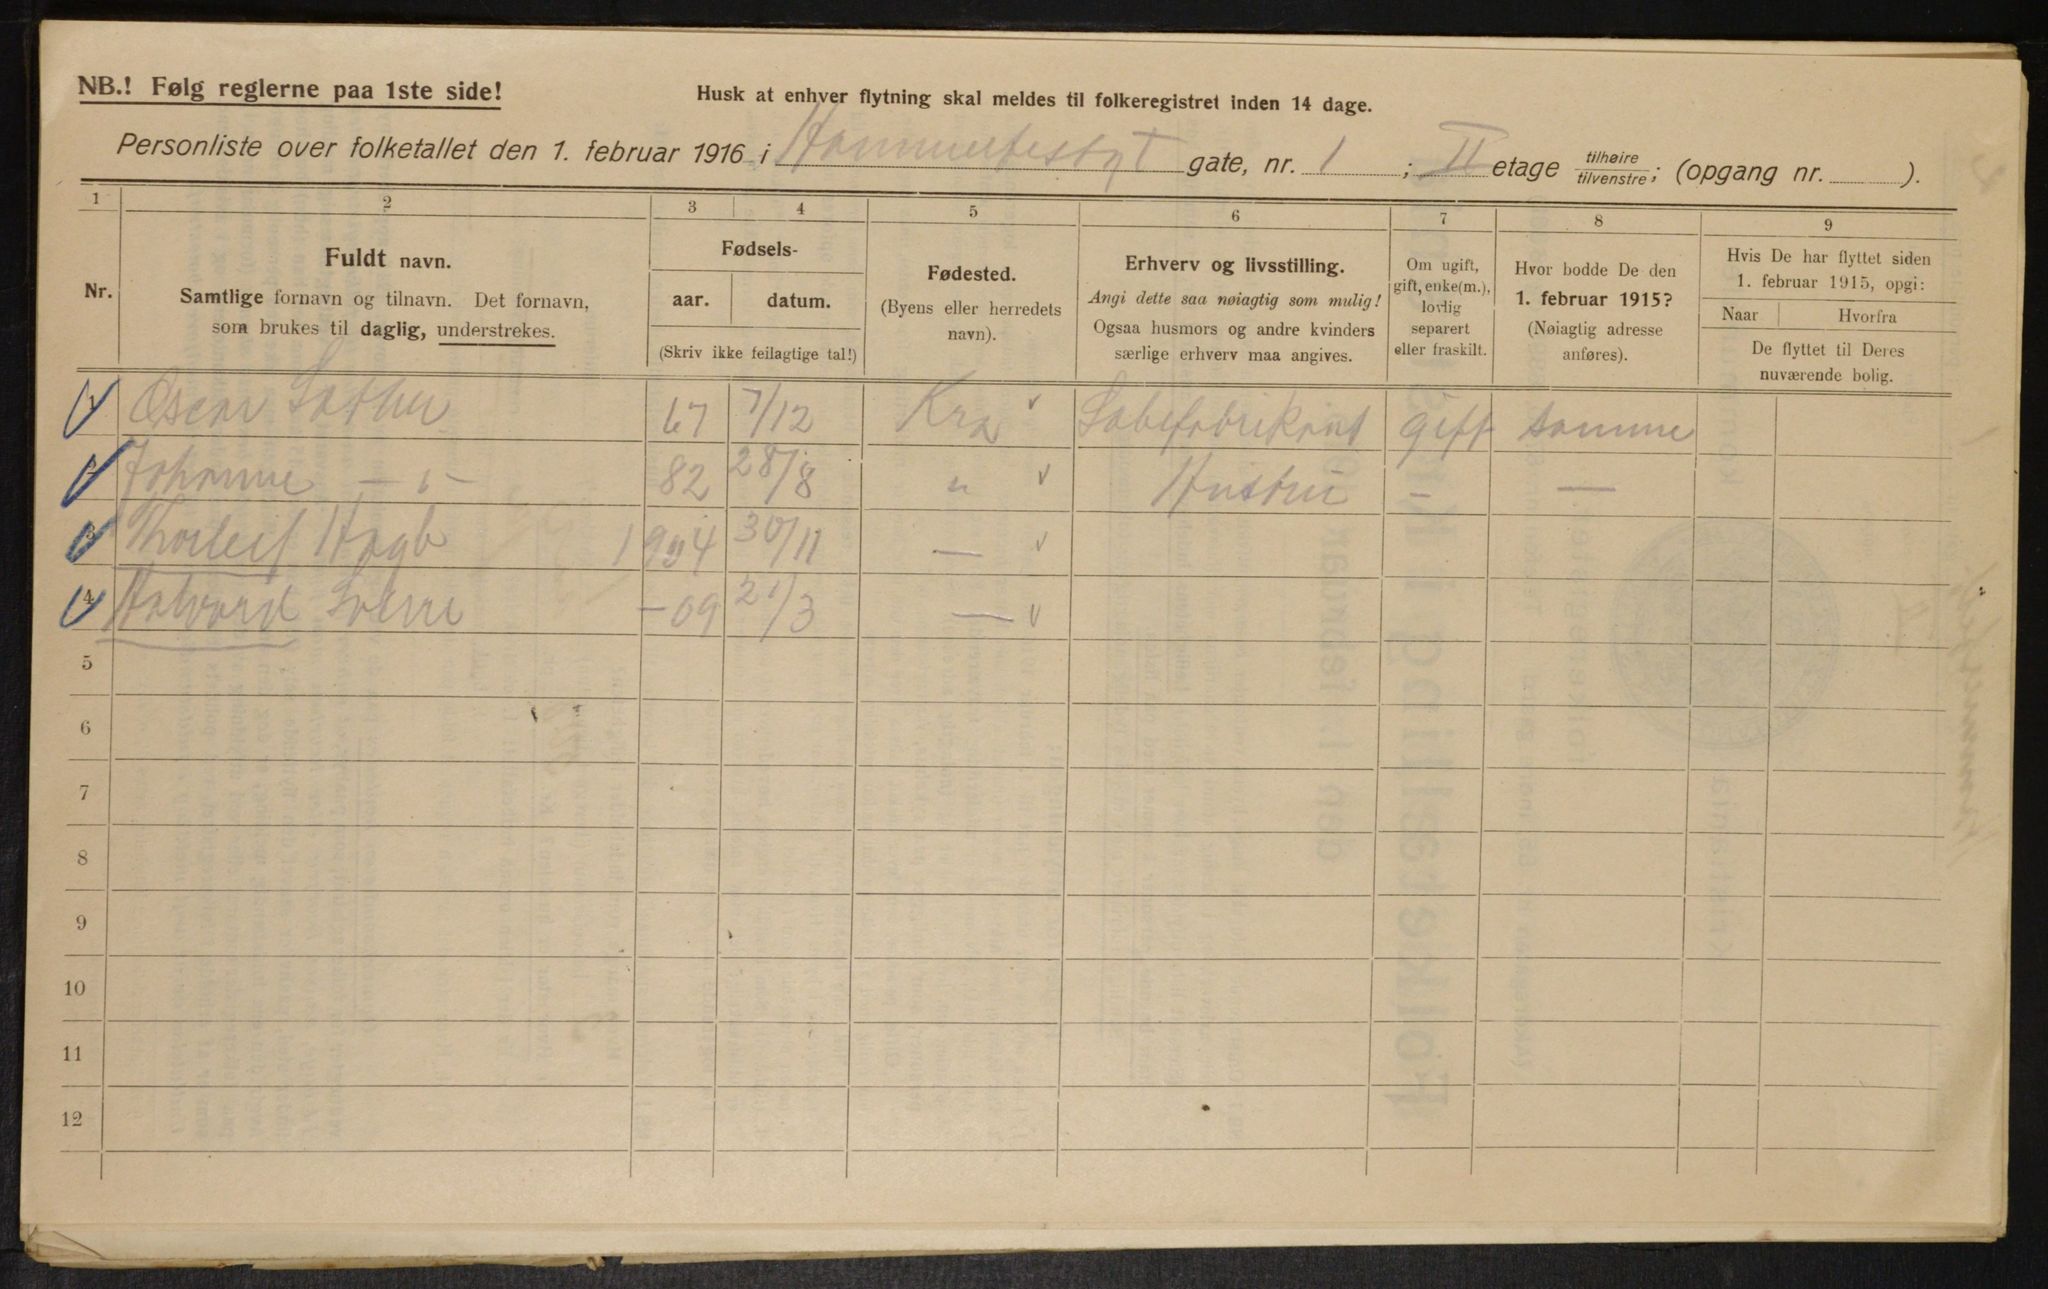 NB.! Følg reglerne paa 1ste side!
Husk at enhver flytning skal meldes til folkeregistret inden 14 dage.
Personliste over folketallet den 1. februar 1916 i Hammerfestgt gate, nr. 1 ; II etage tilhøire/tilvenstre; (opgang nr. ).
1 2 3 4 5 6 7 8 9
Nr.
Fuldt navn.
Samtlige fornavn og tilnavn. Det fornavn,
som brukes til daglig, understrekes.
Fødsels-
aar. datum.
(Skriv ikke feilagtige tal!)
Fødested.
(Byens eller herredets
navn).
Erhverv og livsstilling.
Angi dette saa nøiagtig som mulig!
Ogsaa husmors og andre kvinders
særlige erhverv maa angives.
Om ugift,
gift, enke(m.),
lovlig
separert
eller fraskilt.
Hvor bodde De den
1. februar 1915?
(Nøiagtig adresse
anføres).
Hvis De har flyttet siden
1. februar 1915, opgi:
Naar Hvorfra
De flyttet til Deres
nuværende bolig.
1 Oscar 67 7/12 Kra Gift samme
2 Johanne — " — 82 28/8 " Hustru - —
3 Thorleif 1904 30/11 —
4 Halvard - 09 21/3 —
5
6
7
8
9
10
11
12